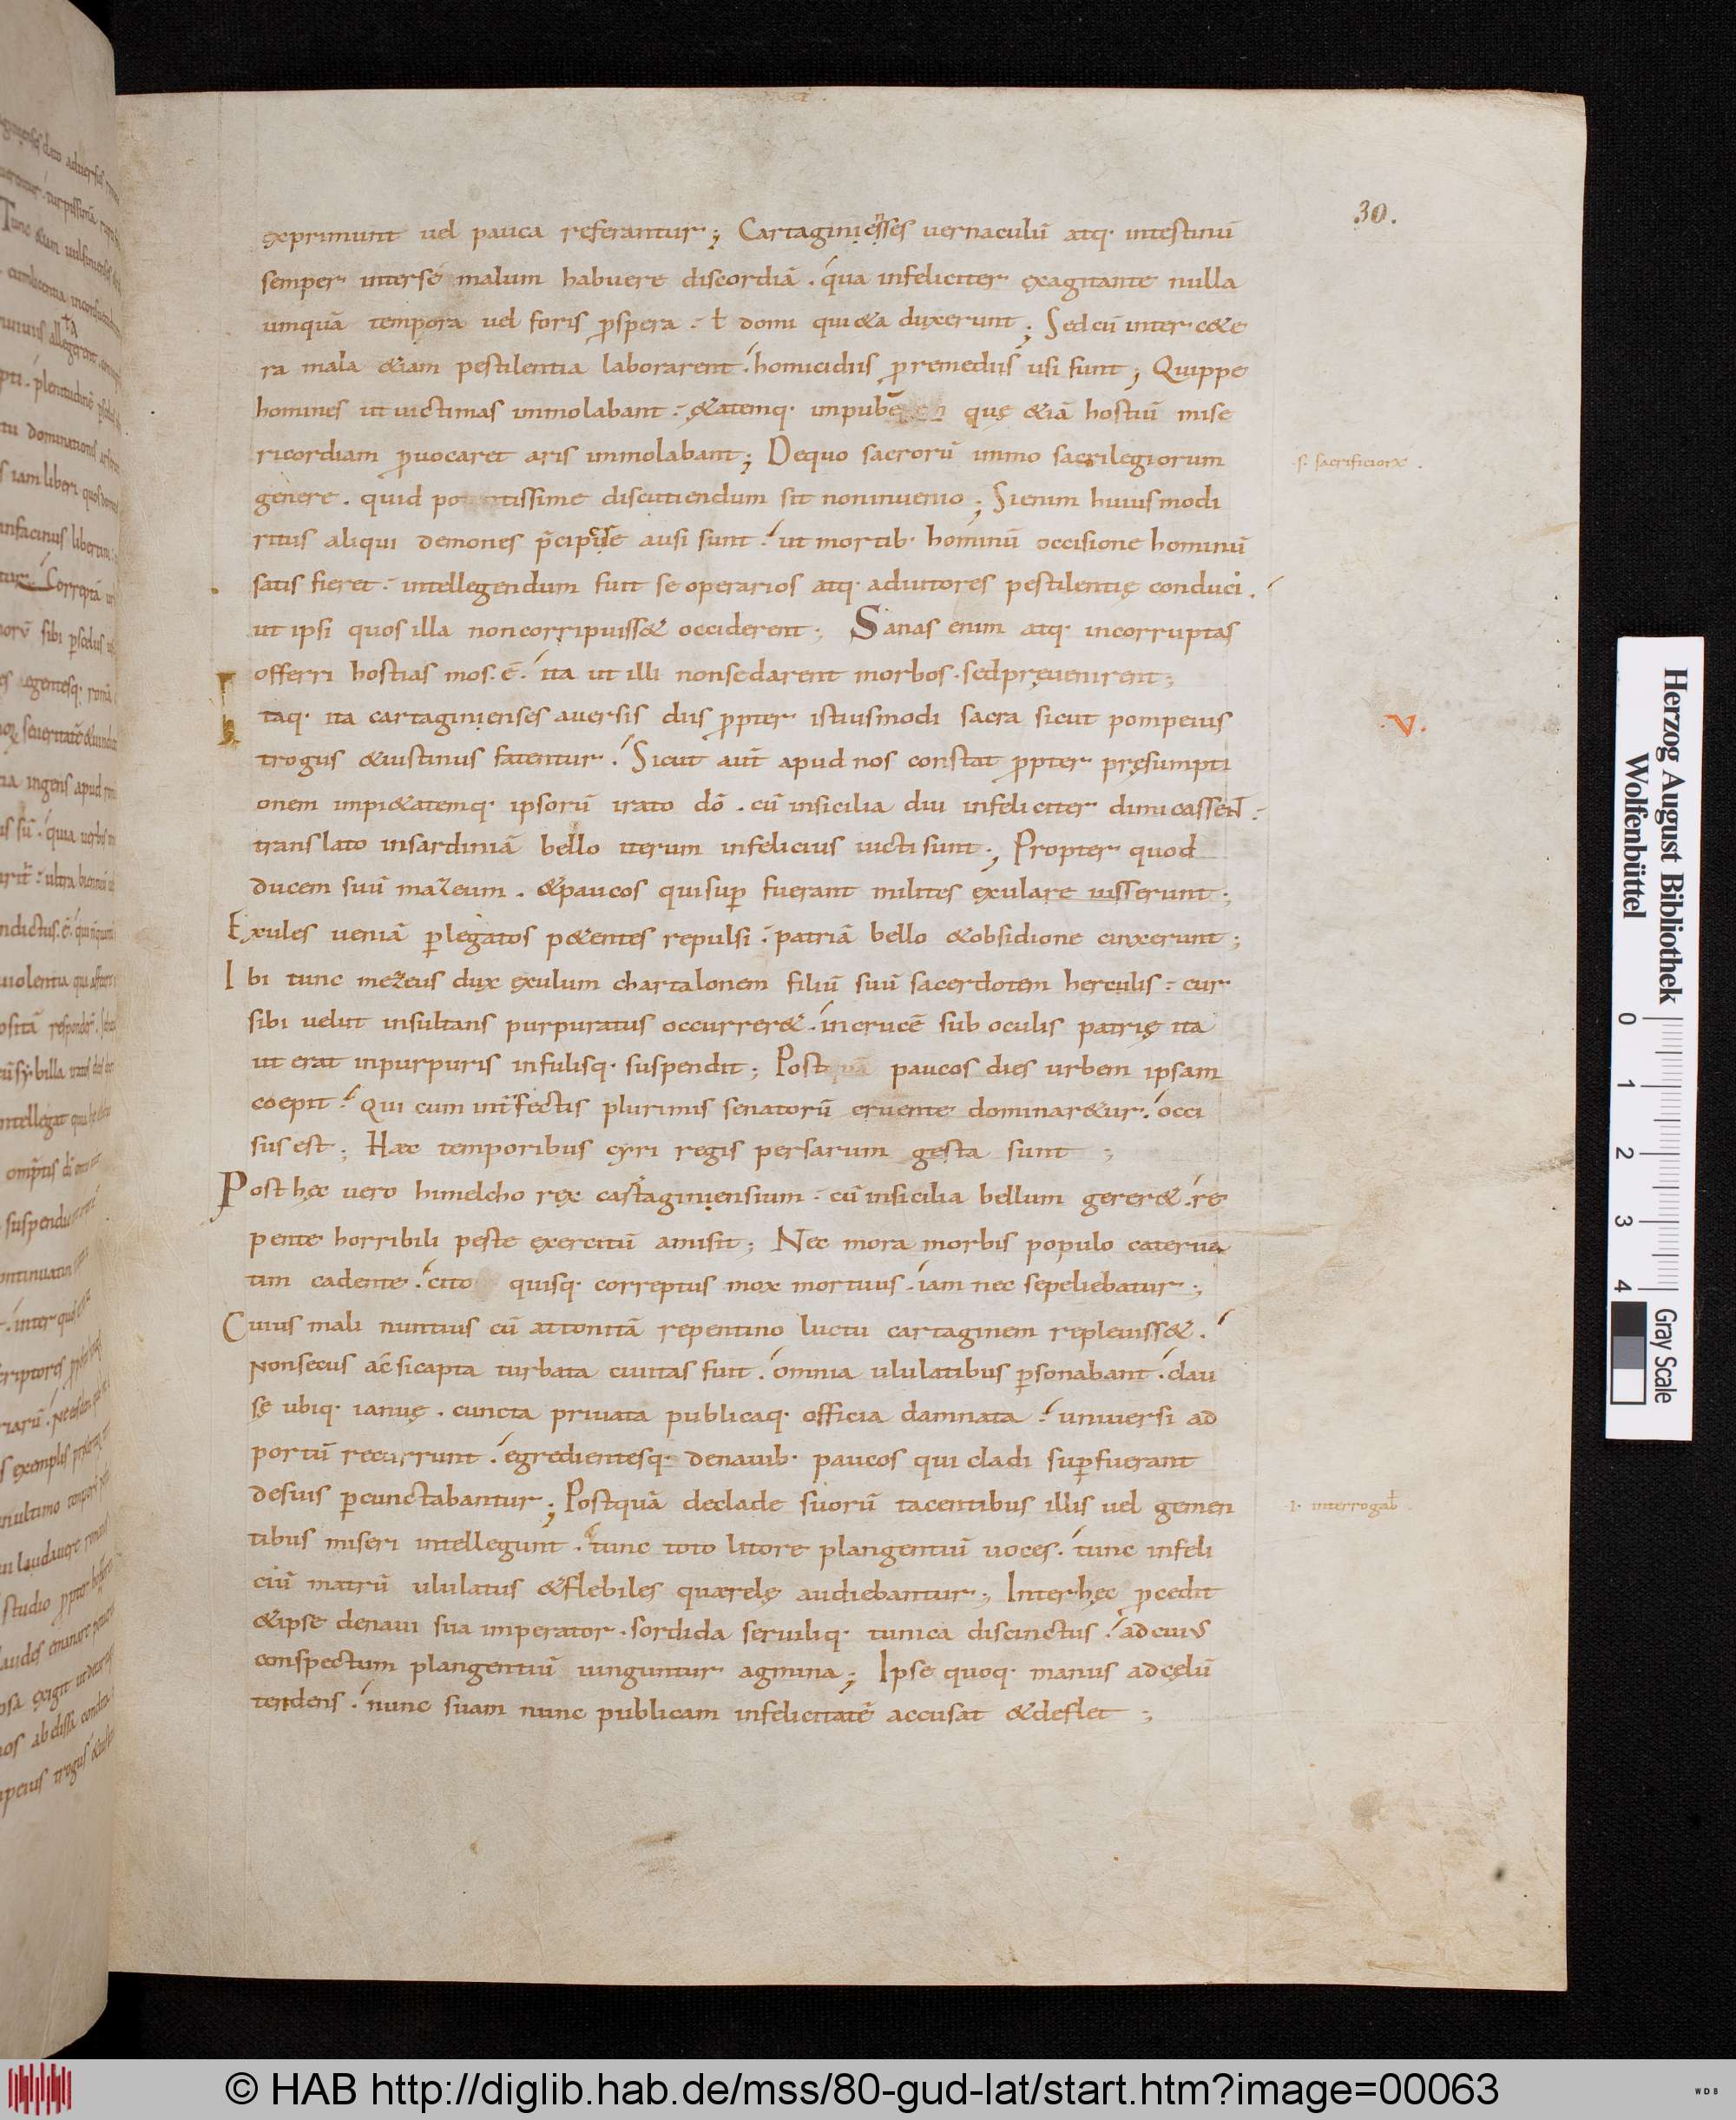 30.
exprimunt vel pauca referantur; Cartaginiensses vernaculū atq· intestinū
semper interse malum habuere discordiā . qua infeliciter exagitante nulla
umquā tempora vel foris ꝓspera . ł domi qui&a duxerunt; Sed cū inter c&e
ra mala &iam pestilentia laborarent . homicidiis ꝓ remediis usi sunt; Quippe
homines ut victimas immolabant . ę&atemq· impubē quę &iā hostiū mise
ricordiam ꝓvocaret aris immolabant; Dequo sacrorū immo sacrilegiorum
·s· sacrificiorꝝ .
genere . quid po tissime discutiendum sit non invenio; Si enim huiusmodi
ritus aliqui demones p̄cipere ausi sunt . ut mortib· hominū occisione hominū
satis fieret . intellegendum fuit se operarios atq· adiutores pestilentię conduci .
ut ipsi quos illa non corripuiss& occiderent; Sanas enim atq· incorruptas
offerri hostias mos . ē . ita ut illi non sedarent morbos . sed pręvenirent;
I taq· ita cartaginienses aversis diis ꝓpter istiusmodi sacra sicut pompeius
.V.
trogus &iustinus fatentur . Sicut aut̄ apud nos constat ꝓpter pręsumpti
onem impi&atemq· ipsorū irato dō . cū insicilia diu infeliciter dimicassent .
translato insardiniā bello iterum infelicius victi sunt; Propter quod
ducem suū mazeum . &paucos qui suꝑ fuerant milites exulare iusserunt;
Exules veniā ꝑ legatos p&entes repulsi . patriā bello &obsidione cinxerunt;
I bi tunc mezeus dux exulum chartalonem filiū suū sacerdotem herculis . cur
sibi velut insultans purpuratus occurrer& . in crucē sub oculis patrię ita
ut erat inpurpuris infulisq· suspendit; Post paucos dies urbem ipsam
coepit . Qui cum int̄fectis plurimis senatorū cruente dominar&ur . occi
sus est; Haec temporibus cyri regis persarum gesta sunt ;
Post hęc vero himelcho rex cartaginiensium . cū insicilia bellum gerer& . re
pente horribili peste exercitū amisit; Nec mora morbis populo caterva
tim cadente . cito quisq· correptus mox mortuus . iam nec sepeliebatur;
Cuius mali nuntius cū attonitā repentino luctu cartaginem repleviss& .
Non secus ac si capta turbata civitas fuit . omnia ululatibus ꝑsonabant . clau
sę ubiq· ianuę . cuncta privata publicaq· officia damnata . universi ad
portū recurrunt . egredientesq· denavib· paucos qui cladi suꝑfuerant
desuis ꝑcunctabantur; Postquā declade suorū tacentibus illis vel gemen
·i· interrogab̄ .
tibus miseri intellegunt . tunc toto litore plangentiū voces . tunc infeli
ciū matrū ululatus &flebiles querelę audiebantur; Interhęc ꝓcedit
&ipse denavi sua imperator . sordida serviliq· tunica discinctus . ad cuius
conspectum plangentiū iunguntur agmina; Ipse quoq· manus ad cęlū
tendens . nunc suam nunc publicam infelicitatē accusat &deflet ;
Herzog August Bibliothek
Wolfenbüttel
0 1 2 3 4
Gray Scale
© HAB http://diglib.hab.de/mss/80-gud-lat/start.htm?image=00063
WDB